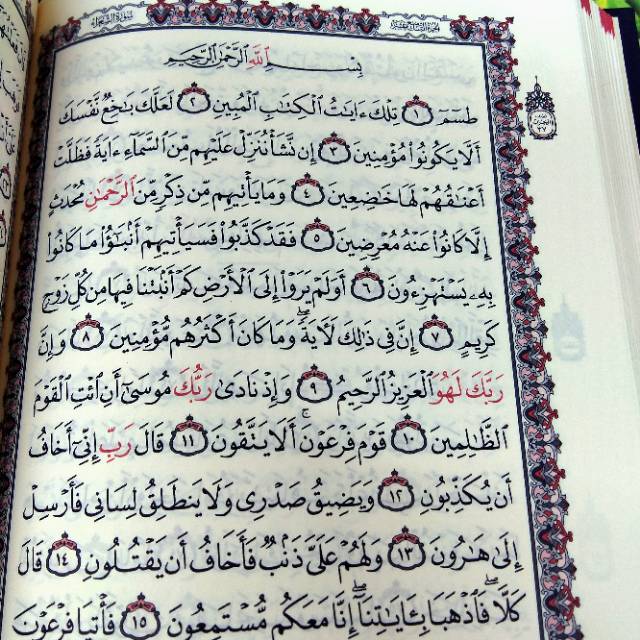 سورة الشعراء
الجزء التاسع عشر
بِسْمِ اللَّهِ الرَّحْمَٰنِ الرَّحِيمِ
طسٓمٓ ١ تِلْكَ ءَايَٰتُ ٱلْكِتَٰبِ ٱلْمُبِينِ ٢ لَعَلَّكَ بَٰخِعٌ نَّفْسَكَ
أَلَّا يَكُونُوا۟ مُؤْمِنِينَ ٣ إِن نَّشَأْ نُنَزِّلْ عَلَيْهِم مِّنَ ٱلسَّمَآءِ ءَايَةً فَظَلَّتْ
أَعْنَٰقُهُمْ لَهَا خَٰضِعِينَ ٤ وَمَا يَأْتِيهِم مِّن ذِكْرٍ مِّنَ ٱلرَّحْمَٰنِ مُحْدَثٍ
إِلَّا كَانُوا۟ عَنْهُ مُعْرِضِينَ ٥ فَقَدْ كَذَّبُوا۟ فَسَيَأْتِيهِمْ أَنۢبَٰٓؤُا۟ مَا كَانُوا۟
بِهِۦ يَسْتَهْزِءُونَ ٦ أَوَلَمْ يَرَوْا۟ إِلَى ٱلْأَرْضِ كَمْ أَنۢبَتْنَا فِيهَا مِن كُلِّ زَوْجٍ
كَرِيمٍ ٧ إِنَّ فِى ذَٰلِكَ لَءَايَةً ۖ وَمَا كَانَ أَكْثَرُهُم مُّؤْمِنِينَ ٨ وَإِنَّ
رَبَّكَ لَهُوَ ٱلْعَزِيزُ ٱلرَّحِيمُ ٩ وَإِذْ نَادَىٰ رَبُّكَ مُوسَىٰٓ أَنِ ٱئْتِ ٱلْقَوْمَ
ٱلظَّٰلِمِينَ ١٠ قَوْمَ فِرْعَوْنَ ۚ أَلَا يَتَّقُونَ ١١ قَالَ رَبِّ إِنِّىٓ أَخَافُ
أَن يُكَذِّبُونِ ١٢ وَيَضِيقُ صَدْرِى وَلَا يَنطَلِقُ لِسَانِى فَأَرْسِلْ
إِلَىٰ هَٰرُونَ ١٣ وَلَهُمْ عَلَىَّ ذَنۢبٌ فَأَخَافُ أَن يَقْتُلُونِ ١٤ قَالَ
كَلَّا ۖ فَٱذْهَبَا بِـَٔايَٰتِنَآ ۖ إِنَّا مَعَكُم مُّسْتَمِعُونَ ١٥ فَأْتِيَا فِرْعَوْنَ